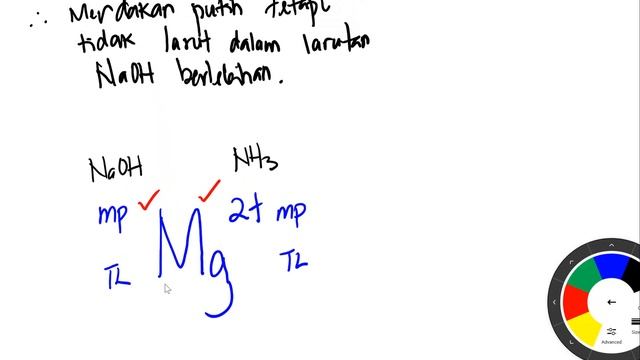 ∴ Mendakan putih tetapi
tidak larut dalam larutan
NaOH berlebihan.
NaOH NH3
mp ✓ Mg ✓ 2+ mp
TL TL
Advanced
Size